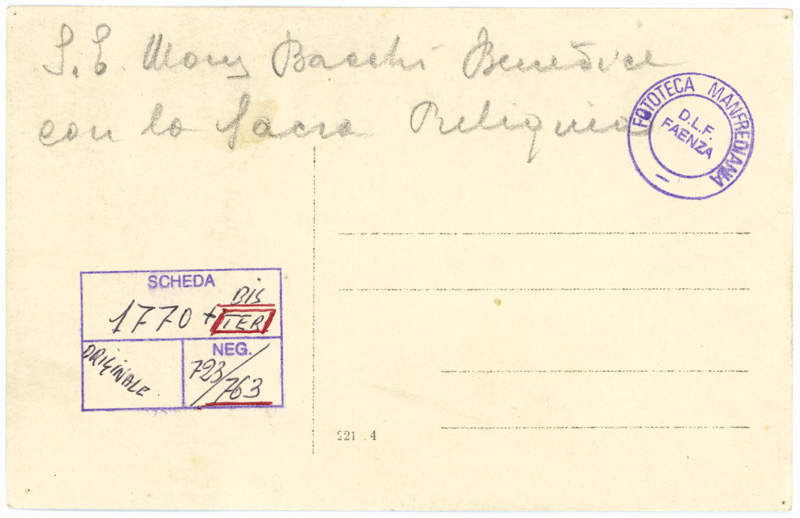 S.E. Mons Bacchi Benedice
con la Sacra Reliquia
FOTOTECA MANFREDIANA
D.L.F.
FAENZA
SCHEDA
BIS
1770 + TER
ORIGINALE
NEG.
723/763
221 4